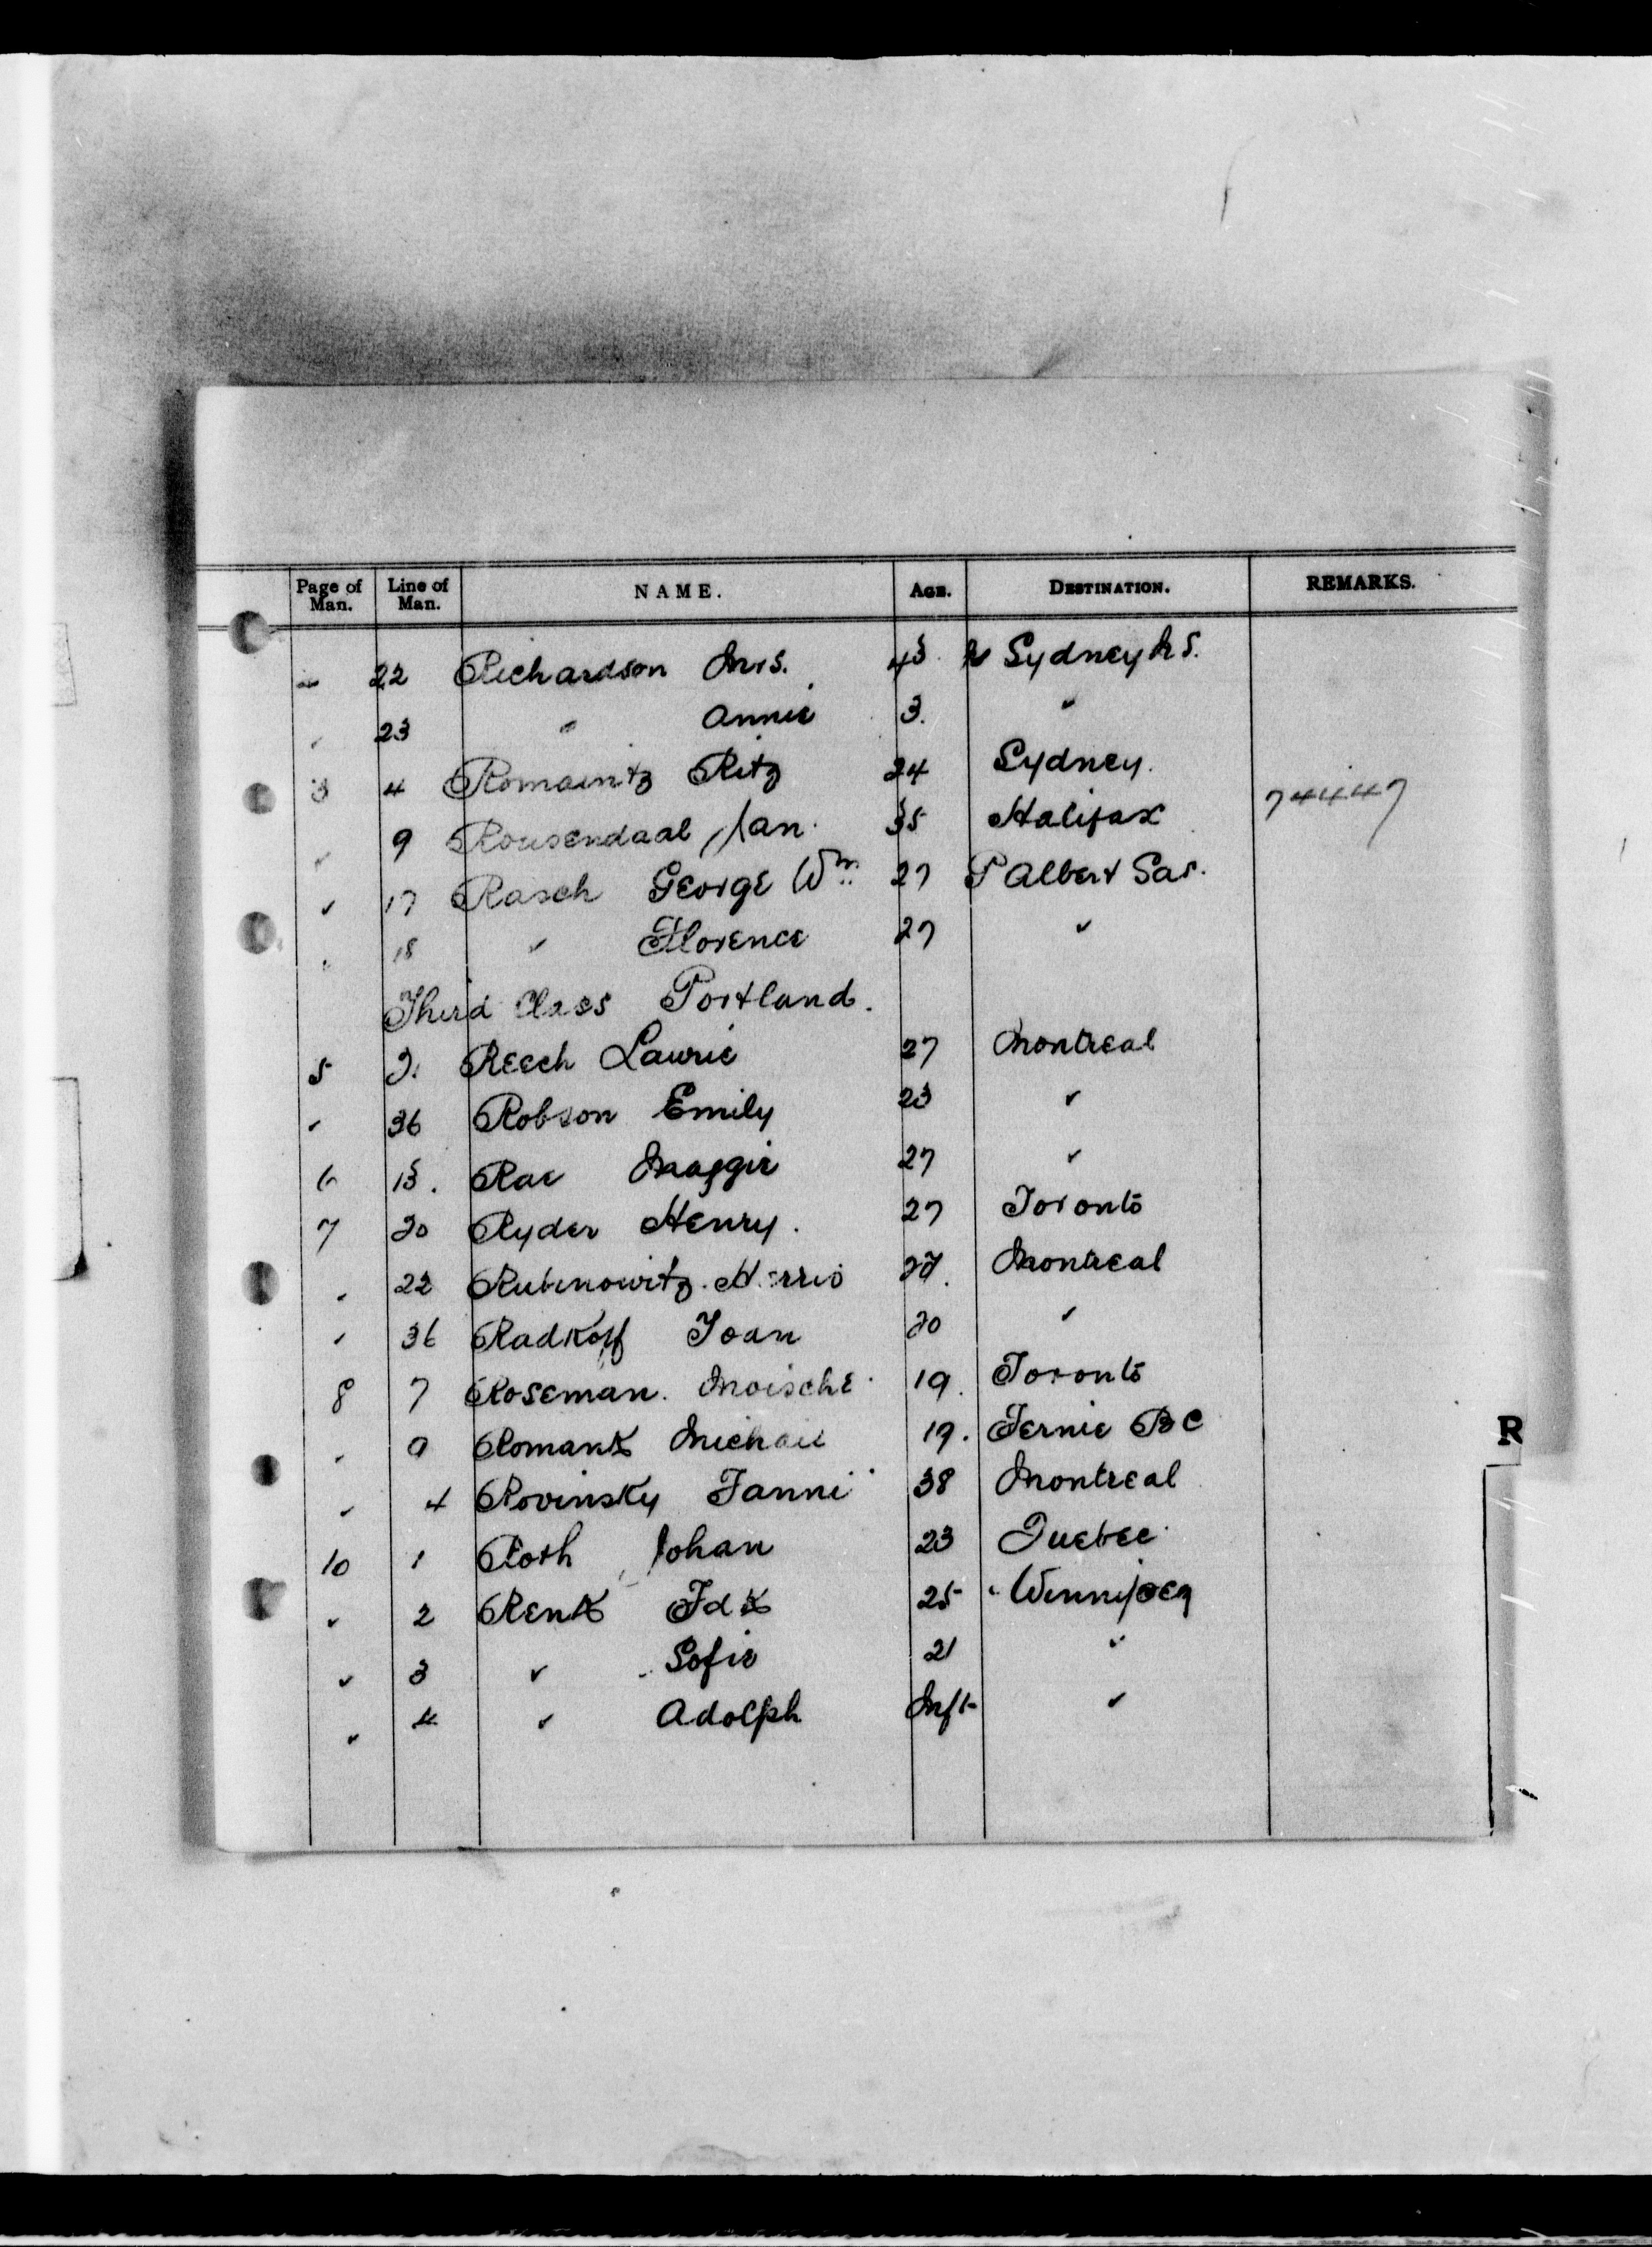 Page of Man. Line of Man. NAME. AGE. DESTINATION. REMARKS.
22 Richardson Mrs. 43 N Sydney N S.
" 23 " Annie 3. "
3 4 Romaintz Ritz 24 Sydney.
" 9 Rousendaal Jan. 35 Halifax 74447
" 17 Rasch George Wm 27 P Albert Sas.
" 18 " Florence 27 "
Third Class Portland.
5 2. Reech Laurie 27 Montreal
" 36 Robson Emily 23 "
6 13. Rae Maggie 27 "
7 20 Ryder Henry. 27 Toronto
" 22 Rubinowitz. Morris Montreal
" 36 Radkoff Ioan 20 "
8 7 Roseman. Moische 19. Toronto
" 9 Romank Michail 19. Fernie B C
" 4 Rovinsky Fanni 38 Montreal
10 1 Roth Johan 23 Quebec
" 2 Renk 25 Winnipeg
" 3 " Sofie 21 "
" 4 " Adolph Inft "
R